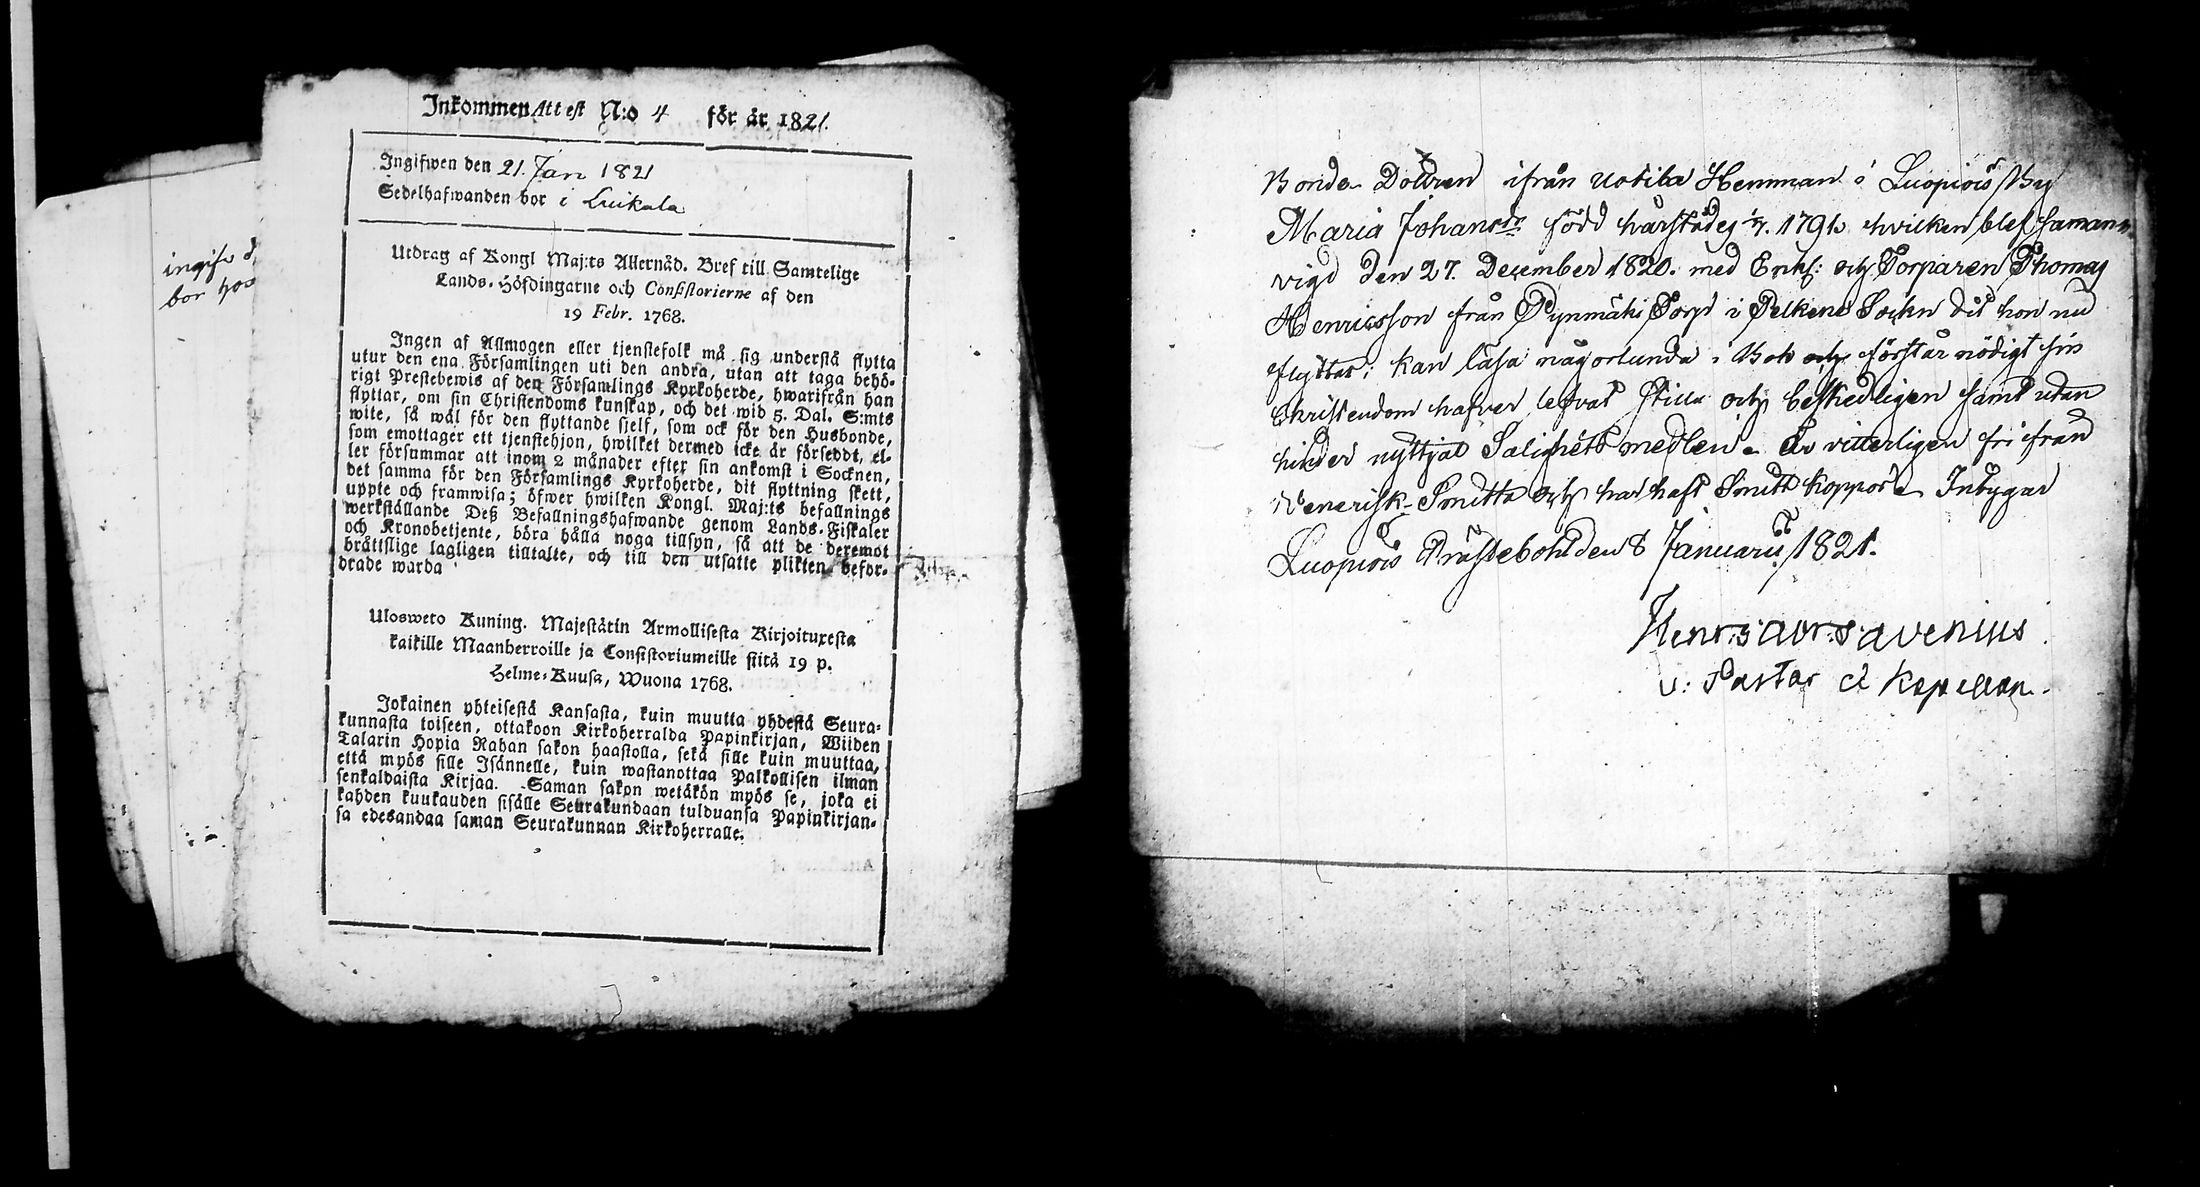 ingifv d.
bor hos
Inkommen Attest N:o 4 för år 1821.
Ingifwen den 21. Jan 1821
Sedelhafwanden bor i Luikala
Utdrag af Kongl Maj:ts Allernåd. Bref till Samtelige
Lands-Höfdingarne och Consistorierne af den
19 Febr. 1768.
Ingen af Allmogen eller tjenstefolk må sig understå flytta
utur den ena Församlingen uti den andra, utan att taga behö-
rigt Prestebewis af den Församlings Kyrkoherde, hwarifrån han
flyttar, om sin Christendoms kunskap, och det wid 5. Dal. S:mts
wite, så wäl för den flyttande sjelf, som ock för den Husbonde,
som emottager ett tjenstehjon, hwilket dermed icke är försedt, el-
ler försummar att inom 2 månader efter sin ankomst i Socknen,
det samma för den Församlings Kyrkoherde, dit flyttning skett,
uppte och framwisa; öfwer hwilken Kongl. Maj:ts befallnings
werkställande Deß Befallningshafwande genom Lands-Fiskaler
och Kronobetjente, böra hålla noga tillsyn, så att de deremot
bråttslige lagligen tilltalte, och till den utsatte plikten befor-
drade warda
Ulosweto Kuning. Majestätin Armollisesta Kirjoituxesta
kaikille Maanherroille ja Consistoriumeille siitä 19 p.
Helme-Kuusa, Wuona 1768.
Jokainen yhteisestä Kansasta, kuin muutta yhdestä Seura-
kunnasta toiseen, ottakoon Kirkoherralda Papinkirjan, Wiiden
Talarin Hopia Rahan sakon haastolla, sekä sille kuin muuttaa,
että myös sille Isännelle, kuin wastanottaa Palkollisen ilman
senkaldaista Kirjaa. Saman sakon wetäkön myös se, joka ei
kahden kuukauden sisälle Seurakundaan tulduansa Papinkirjan-
sa edesandaa saman Seurakunnan Kirkoherralle.
Bonde Dottren ifrån Uotila Hemman i Luopiois By
Maria Johansdr född härstädes 1791. hvilken blef samman-
vigd den 27. December 1820. med Enkl: och Torparen Thomas
Henricsson från Pynmäki Torp i Pelkene Sockn dit hon nu
flyttar; kan läsa någorlunda i Bok och förstår nödigt sin
Christendom hafver lefvat stilla och beskedligen samt utan
hinder nyttjat Salighets medlen. Är vitterligen fri från
Venerisk Smitta och har haft Smitt koppor. Intygar
Luopiois Prästebohl den 8 Januarii 1821.
v: Pastor & Kapellan.